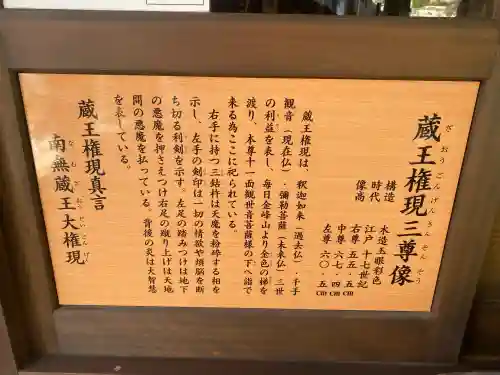 蔵王権現三尊像
ざおうごんげんさんそんぞう
構造 木造玉眼彩色
時代 江戸 十七世紀
像高 右尊 五五・五㎝
中尊 六七・四㎝
左尊 六〇・五㎝
蔵王権現は、釈迦如来(過去仏)・千手
観音(現在仏)・弥勒菩薩(未来仏)三世
の利益を表し、毎日金峰山より金色の梯を
渡り、本尊十一面観世音菩薩様の下へ詣で
来る為ここに祀られている。
右手に持つ三鈷杵は天魔を粉砕する相を
示し、左手の剣印は一切の情欲や煩悩を断
ち切る利剣を示す。左足の踏みつけは地下
の悪魔を押さえつけ右足の蹴り上げは天地
間の悪魔を払っている。背後の炎は大智慧
を表している。
蔵王権現真言
南無蔵王大権現
なむざおうだいごんげん